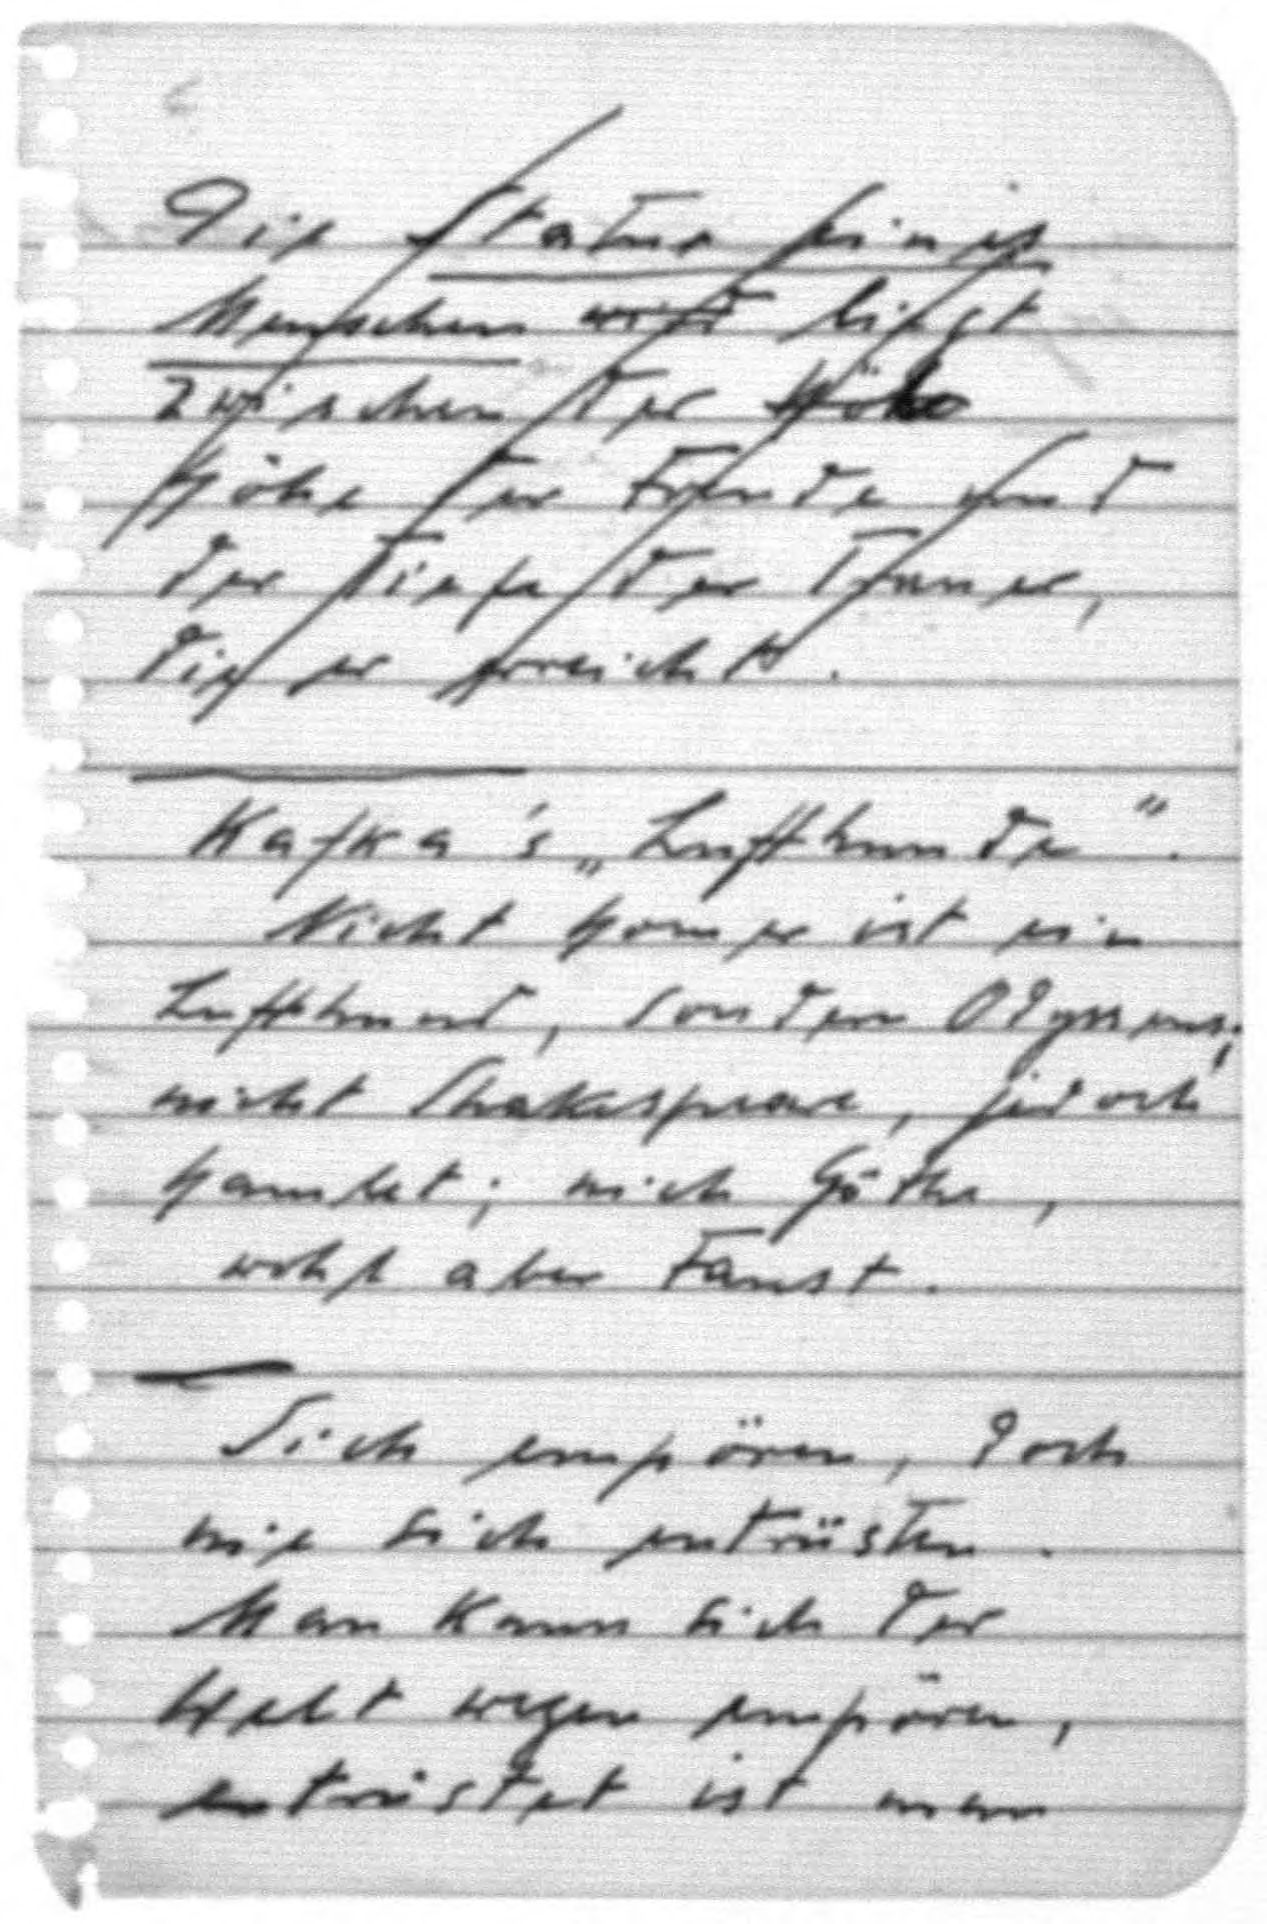 Die Statur eines
Menschen wird liegt
zwischen der Höhe
Höhe der Freude und
der Tiefe der Trauer,
die er erreicht.
Kafka's „Lufthunde".
Nicht Homer ist ein
Lufthund, sondern Odysseus;
nicht Shakespeare, jedoch
Hamlet; nich Göthe,
wohl aber Faust.
Sich empören, doch
nie sich entrüsten.
Man kann sich der
Welt wegen empören,
entrüstet ist man